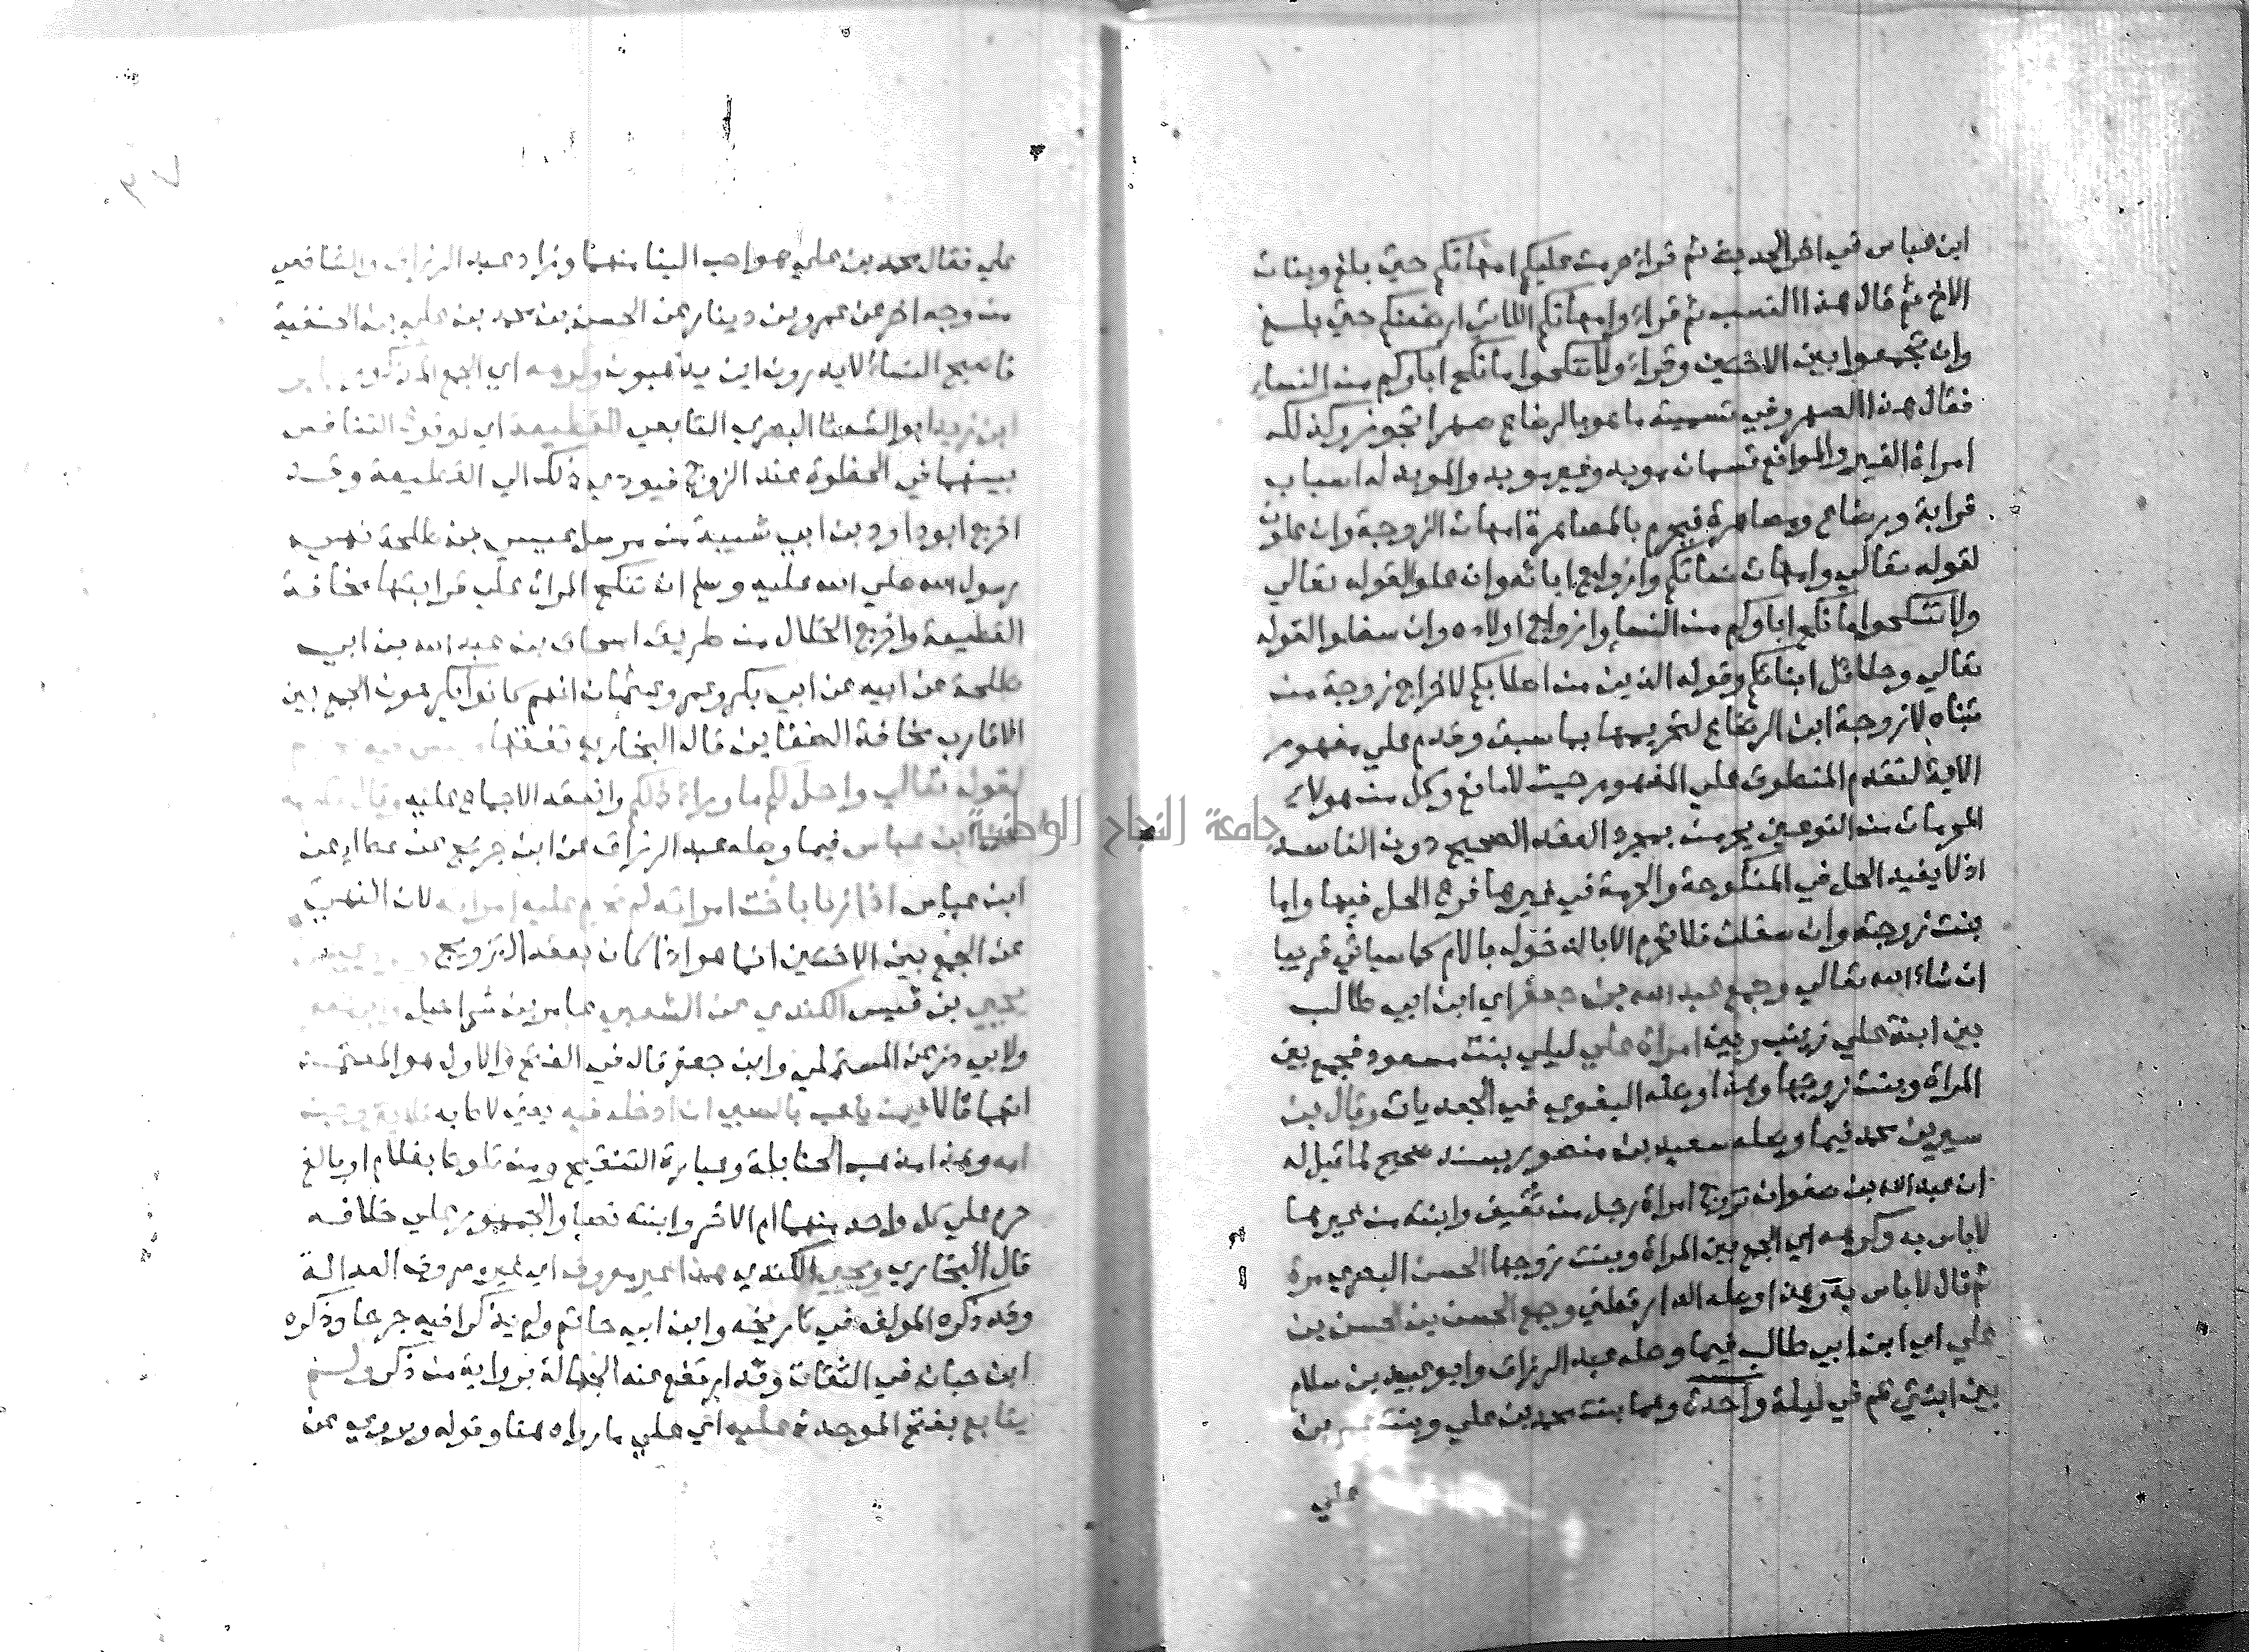 ابن عباس في اخر الحديث ثم قراء حرمت عليكم امهاتكم حتي بلغ وبنات
الاخ ثم قال هذا النسب ثم قراء وامهاتكم اللاتي ارضعنكم حتي بلغ
وان تجمعوا بين الاختين وقراء ولا تنكحوا ما نكح اباوكم من النساء
فقال هذا الصهر وفي تسمية ما هو بالرضاع صهرا تجوز وكذلك
امراة الغير والموانع قسمان موبد وغير موبد والموبد له اسباب
قرابة ورضاع ومصاهرة فيحرم بالمصاهرة امهات الزوجة وان علون
لقوله تعالي وامهات نسائكم وازواج ابائه وان علوا لقوله تعالي
ولا تنكحوا ما نكح اباوكم من النساء وازواج اولاده وان سفلوا لقوله
تعالي وحلائل ابنائكم وقوله الذين من اصلابكم لاخراج زوجة من
تبناه لا زوجة ابن الرضاع لتحريمها بما سبق وقدم علي مفهوم
الاية لتقدم المنطوق علي المفهوم حيث لا مانع وكل من هولاء
المحرمات من النوعين يحرمن بمجرد العقد الصحيح دون الفاسد
اذ لا يفيد الحل في المنكوحة والحرمة في غيرها فرع الحل فيها واما
بنت زوجته وان سفلت فلا تحرم الا بالدخول بالام كما سياتي قريبا
ان شاء الله تعالي وجمع عبد الله بن جعفر اي ابن ابي طالب
بين ابنة علي زينب وبين امراة علي ليلي بنت مسعود فجمع بين
المراة وبنت زوجها وهذا وصله البغوي في الجعديات وقال بن
سيرين محمد فيما وصله سعيد بن منصور بسند صحيح لما قيل له
ان عبد الله بن صفوان تزوج امراة رجل من ثقيف وابنته من غيرها
لا باس به وكرهه اي الجمع بين المراة وبنت زوجها الحسن البصري مرة
ثم قال لا باس به وهذا وصله الدارقطني وجمع الحسن بن الحسن بن
علي اي ابن ابي طالب فيما وصله عبد الرزاق وابو عبيد بن سلام
بين ابنتي عم في ليلة واحدة وهما بنت محمد بن علي وبنت عمر بن
علي
علي فقال محمد بن علي هو احب الينا منهما وزاد عبد الرزاق والشافعي
من وجه اخر عن عمرو بن دينار عن الحسن بن محمد بن علي بن الحنفية
فاصبح النساء لا يدرون اين يذهبون وكرهه اي الجمع المذكور جابر
ابن زيد ابو الشعثا البصري التابعي للقطيعة اي لوقوع التنافس
بينهما في الحظوة عند الزوج فيودي ذلك الي القطيعة وقد
اخرج ابو داود بن ابي شيبة من مرسل عيسي بن طلحة نهي
رسول الله صلي الله عليه وسلم ان تنكح المراة علي قرابتها مخافة
القطيعة واخرج الخلال من طريق اسحاق بن عبد الله بن ابي
طلحة عن ابيه عن ابي بكر وعمر وعثمان انهم كانوا يكرهون الجمع بين
الاقارب مخافة الضغائن قال البخاري تفقها وليس فيه تحريم
لقوله تعالي واحل لكم ما وراء ذلكم وانعقد الاجماع عليه وقال عكرمة
عن ابن عباس فيما وصله عبد الرزاق عن ابن جريج عن عطاء عن
ابن عباس اذا زنا باخت امراته لم تحرم عليه امراته لان النهي
عن الجمع بين الاختين انما هو اذا كان بعقد التزويج
يحيي بن قيس الكندي عن الشعبي عامر بن شراحيل
ولابي ذر عن المستملي وابن جعفر قال في الفتح والاول هو المعتمد
انهما قالا فيمن يلعب بالصبي ان ادخله فيه يعني لاط به
امه وهذا مذهب الحنابلة وعبارة التنقيح ومن تلوط بغلام او بالغ
حرم علي كل واحد منهما ام الاخر وابنته نصا والجمهور علي خلافه
قال البخاري ويحيي الكندي هذا غير معروف اي غير معروف العدالة
وقد ذكره المولف في تاريخه وابن ابي حاتم ولم يذكرا فيه جرحا وذكره
ابن حبان في الثقات وقد ارتفع عنه الجهالة برواية من ذكر ولم
يتابع بفتح الموحدة عليه اي علي ما رواه هنا وقوله ويروي عن
جامعة النجاح الوطنية